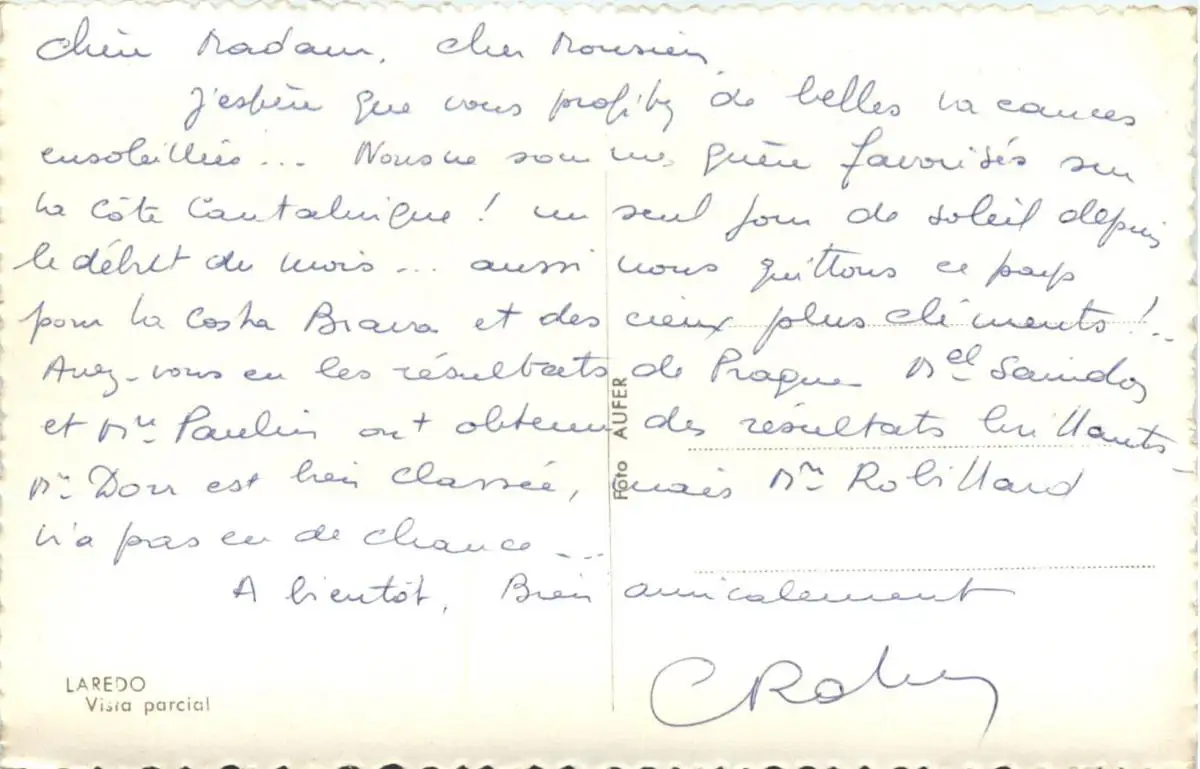 Chère Madame, cher Monsieur,
J'espère que vous profitez de belles vacances
ensoleillées... Nous ne sommes guère favorisés sur
la côte Cantabrique ! un seul jour de soleil depuis
le début du mois... aussi nous quittons ce pays
pour la Costa Brava et des cieux plus cléments !..
Avez-vous eu les résultats de Prague Mel
et Mr Paulin ont obtenu des résultats brillants -
Mr Dorr est bien classée, mais Mr Robillard
n'a pas eu de chance ....
A bientôt, Bien amicalement
Foto AUFER
LAREDO
Vista parcial